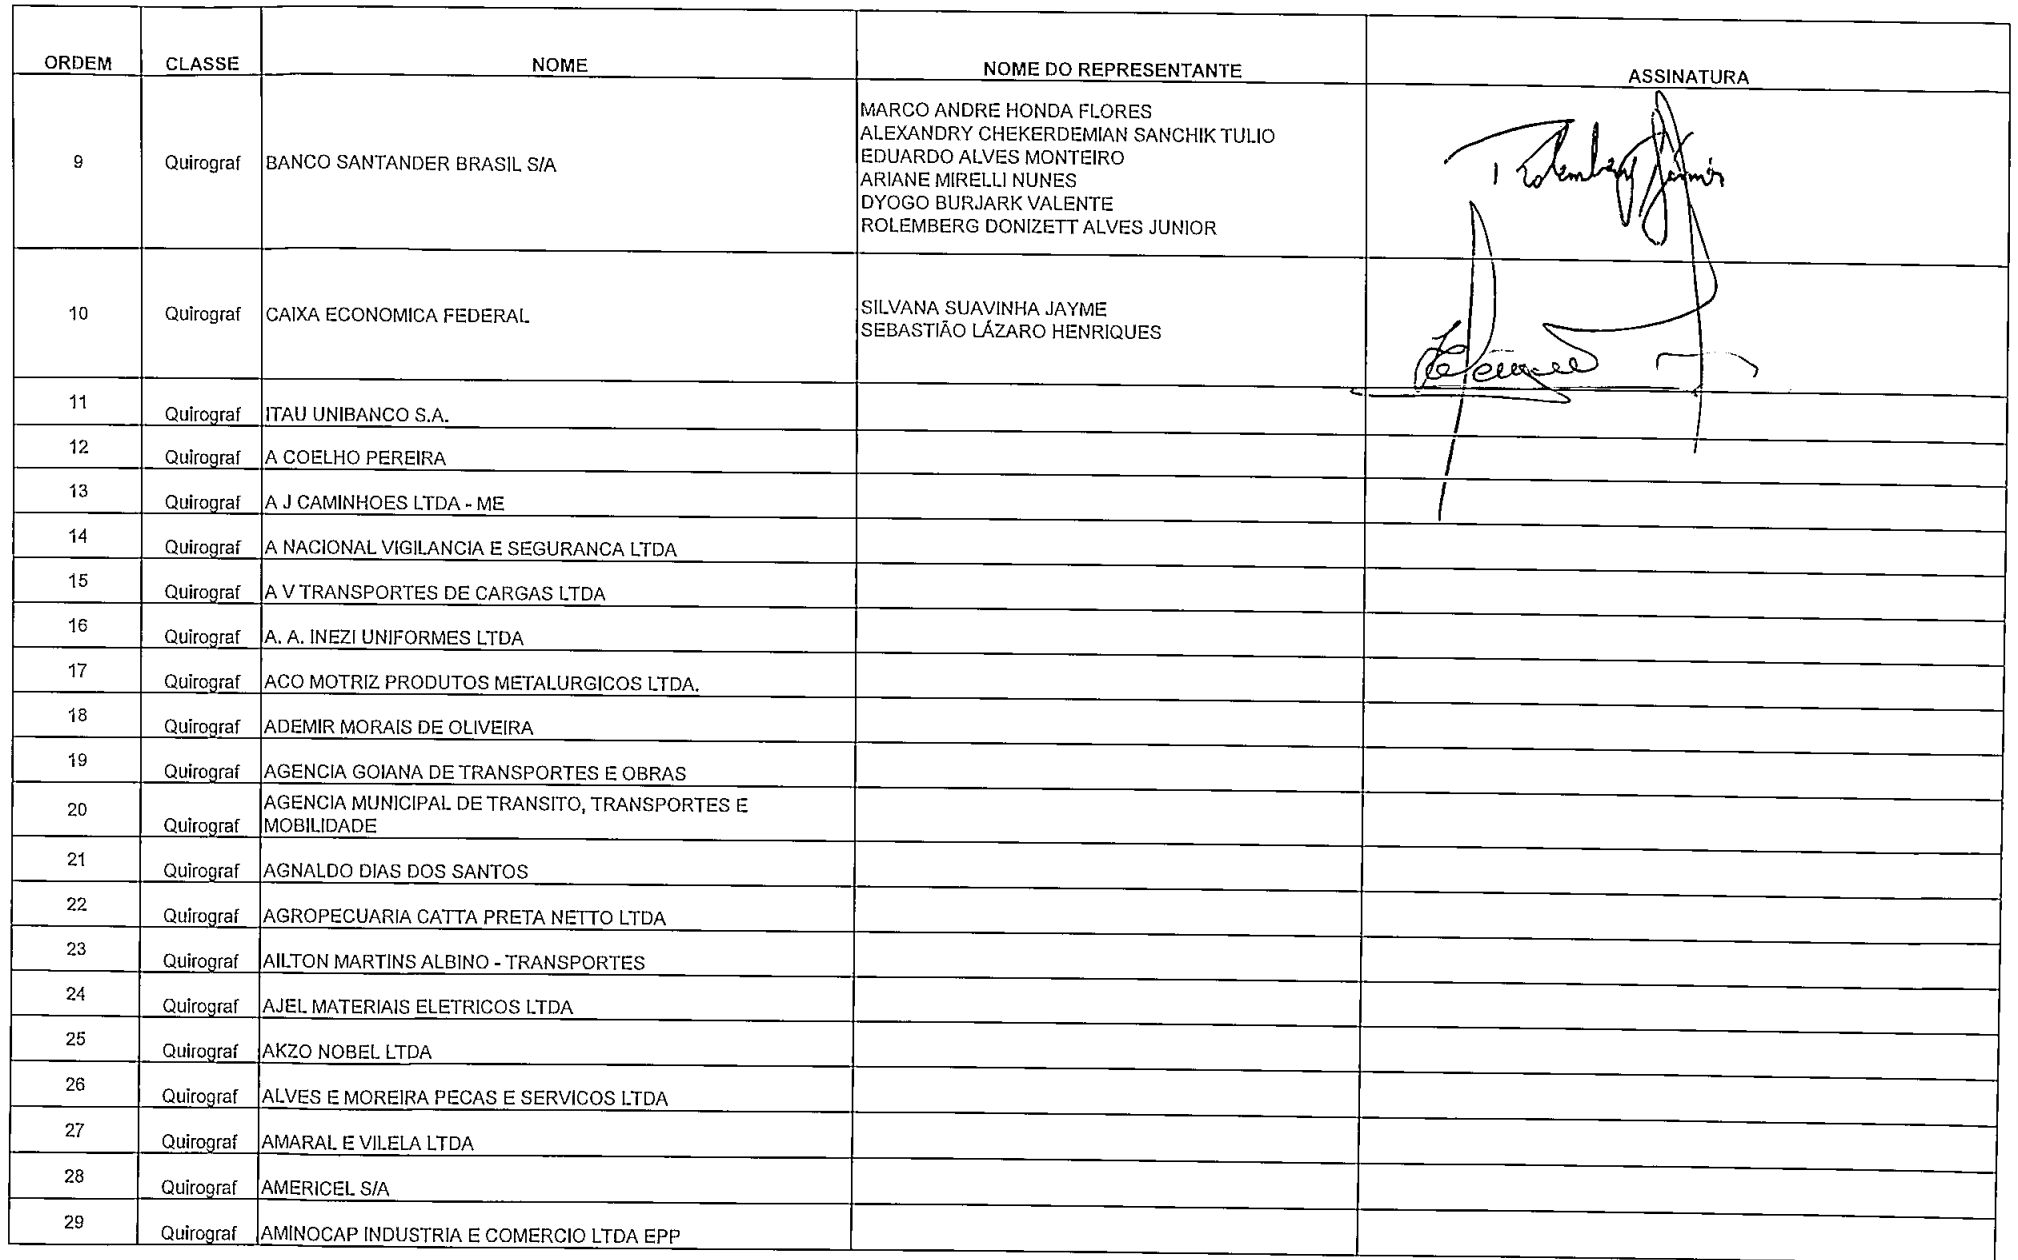 ORDEM CLASSE NOME NOME DO REPRESENTANTE ASSINATURA
9 Quirograf BANCO SANTANDER BRASIL S/A
MARCO ANDRE HONDA FLORES
ALEXANDRY CHEKERDEMIAN SANCHIK TULIO
EDUARDO ALVES MONTEIRO
ARIANE MIRELLI NUNES
DYOGO BURJARK VALENTE
ROLEMBERG DONIZETT ALVES JUNIOR
10 Quirograf CAIXA ECONOMICA FEDERAL
SILVANA SUAVINHA JAYME
SEBASTIÃO LÁZARO HENRIQUES
11 Quirograf ITAU UNIBANCO S.A.
12 Quirograf A COELHO PEREIRA
13 Quirograf A J CAMINHOES LTDA - ME
14 Quirograf A NACIONAL VIGILANCIA E SEGURANCA LTDA
15 Quirograf A V TRANSPORTES DE CARGAS LTDA
16 Quirograf A. A. INEZI UNIFORMES LTDA
17 Quirograf ACO MOTRIZ PRODUTOS METALURGICOS LTDA.
18 Quirograf ADEMIR MORAIS DE OLIVEIRA
19 Quirograf AGENCIA GOIANA DE TRANSPORTES E OBRAS
20 Quirograf AGENCIA MUNICIPAL DE TRANSITO, TRANSPORTES E
MOBILIDADE
21 Quirograf AGNALDO DIAS DOS SANTOS
22 Quirograf AGROPECUARIA CATTA PRETA NETTO LTDA
23 Quirograf AILTON MARTINS ALBINO - TRANSPORTES
24 Quirograf AJEL MATERIAIS ELETRICOS LTDA
25 Quirograf AKZO NOBEL LTDA
26 Quirograf ALVES E MOREIRA PECAS E SERVICOS LTDA
27 Quirograf AMARAL E VILELA LTDA
28 Quirograf AMERICEL S/A
29 Quirograf AMINOCAP INDUSTRIA E COMERCIO LTDA EPP